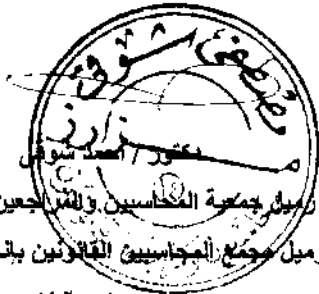 مصطفى شوقى
مزارز
دكتور / أحمد شوقى
زميل جمعية المحاسبين والمراجعين
زميل مجمع المحاسبين القانونين بانـ